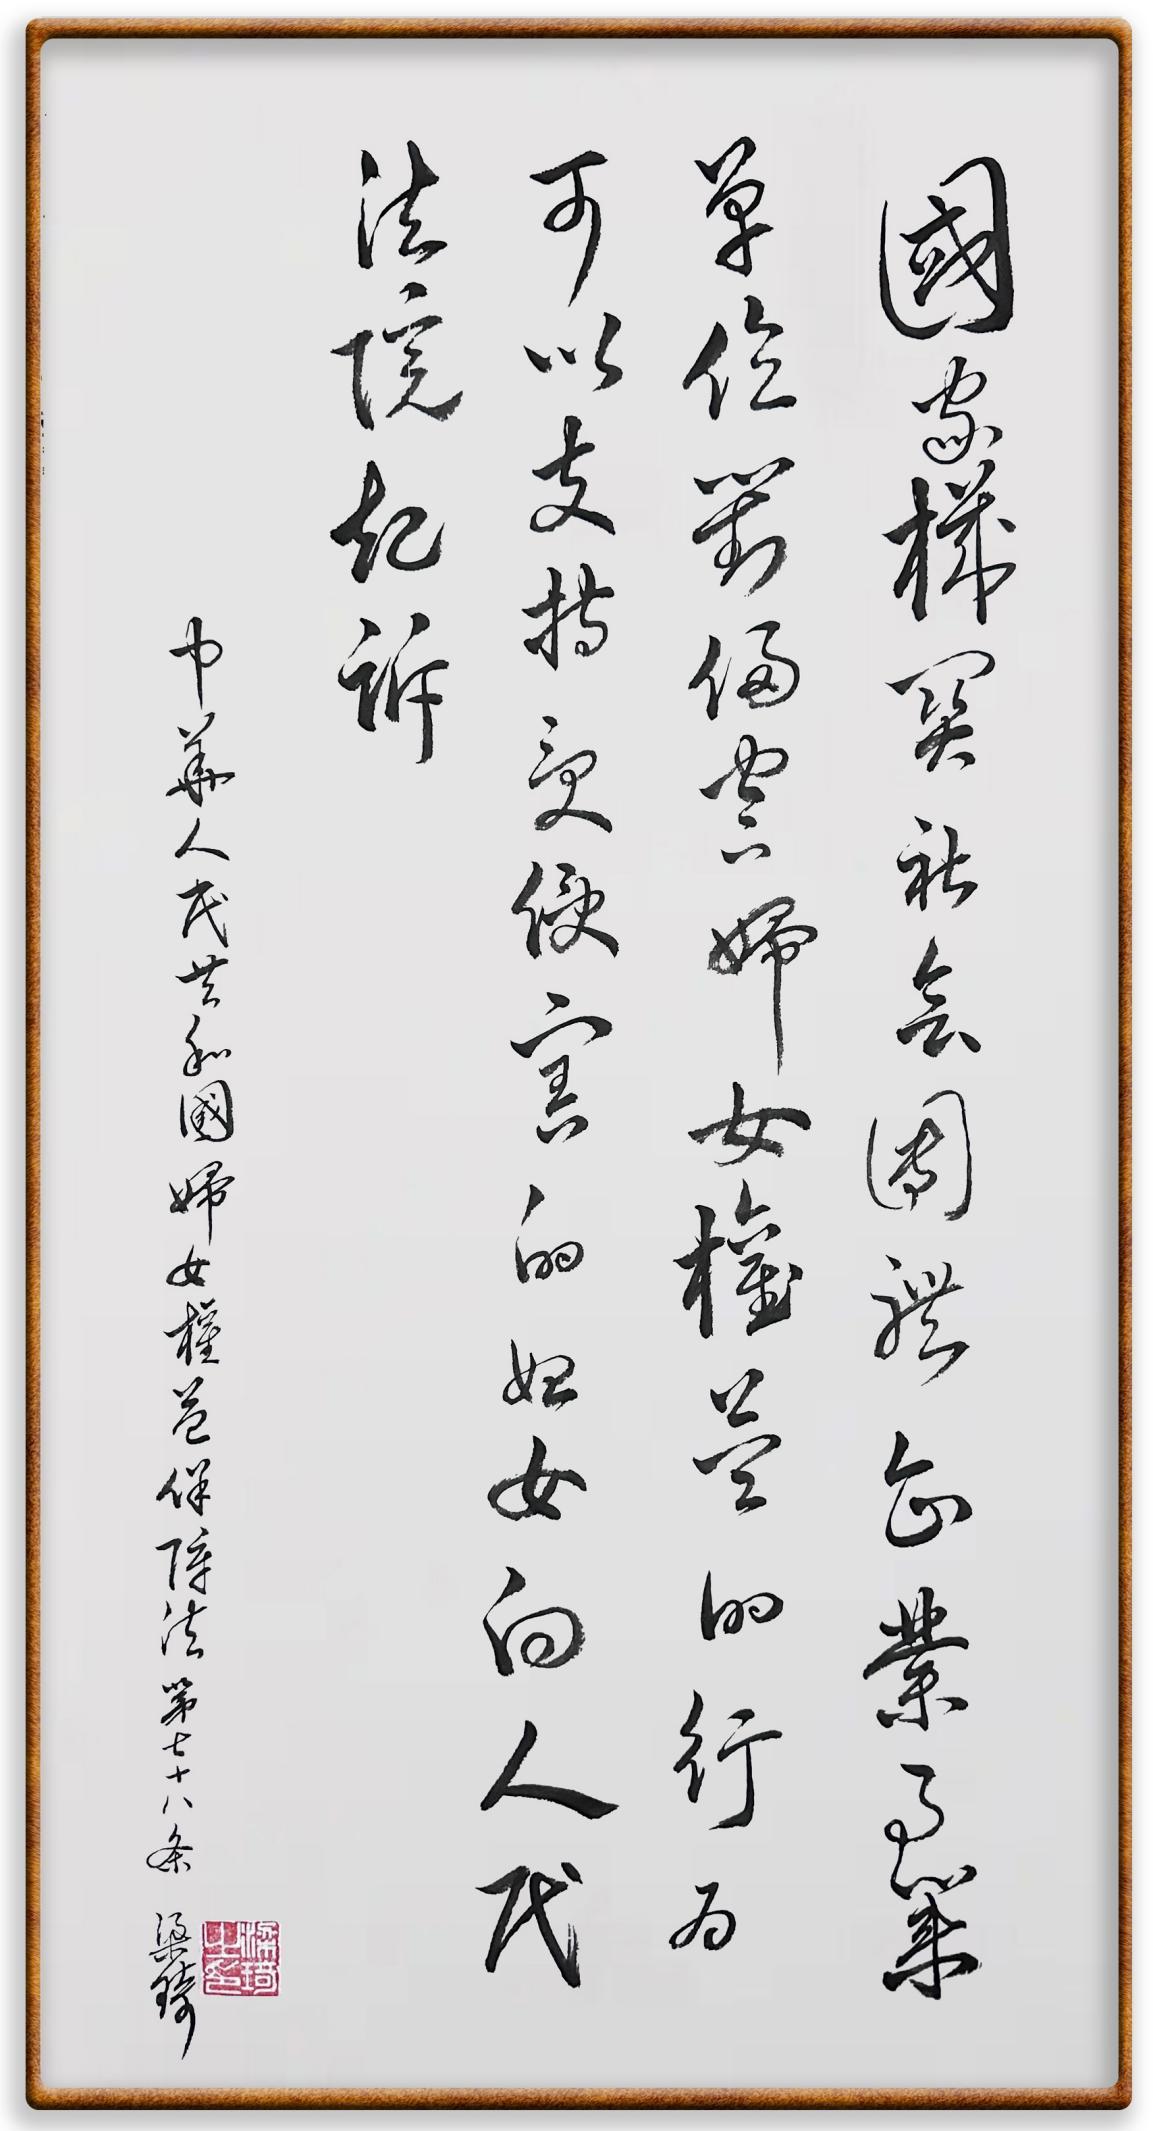 國家機関社会團體企業事業
单位對侵害婦女權益的行为
可以支持受侵害的妇女向人民
法院起訴
中華人民共和國婦女權益保障法第七十八条 梁琦
梁琦之印